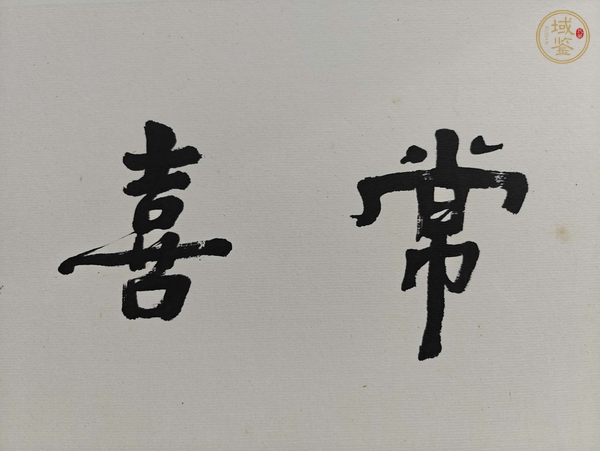 常喜
域鉴